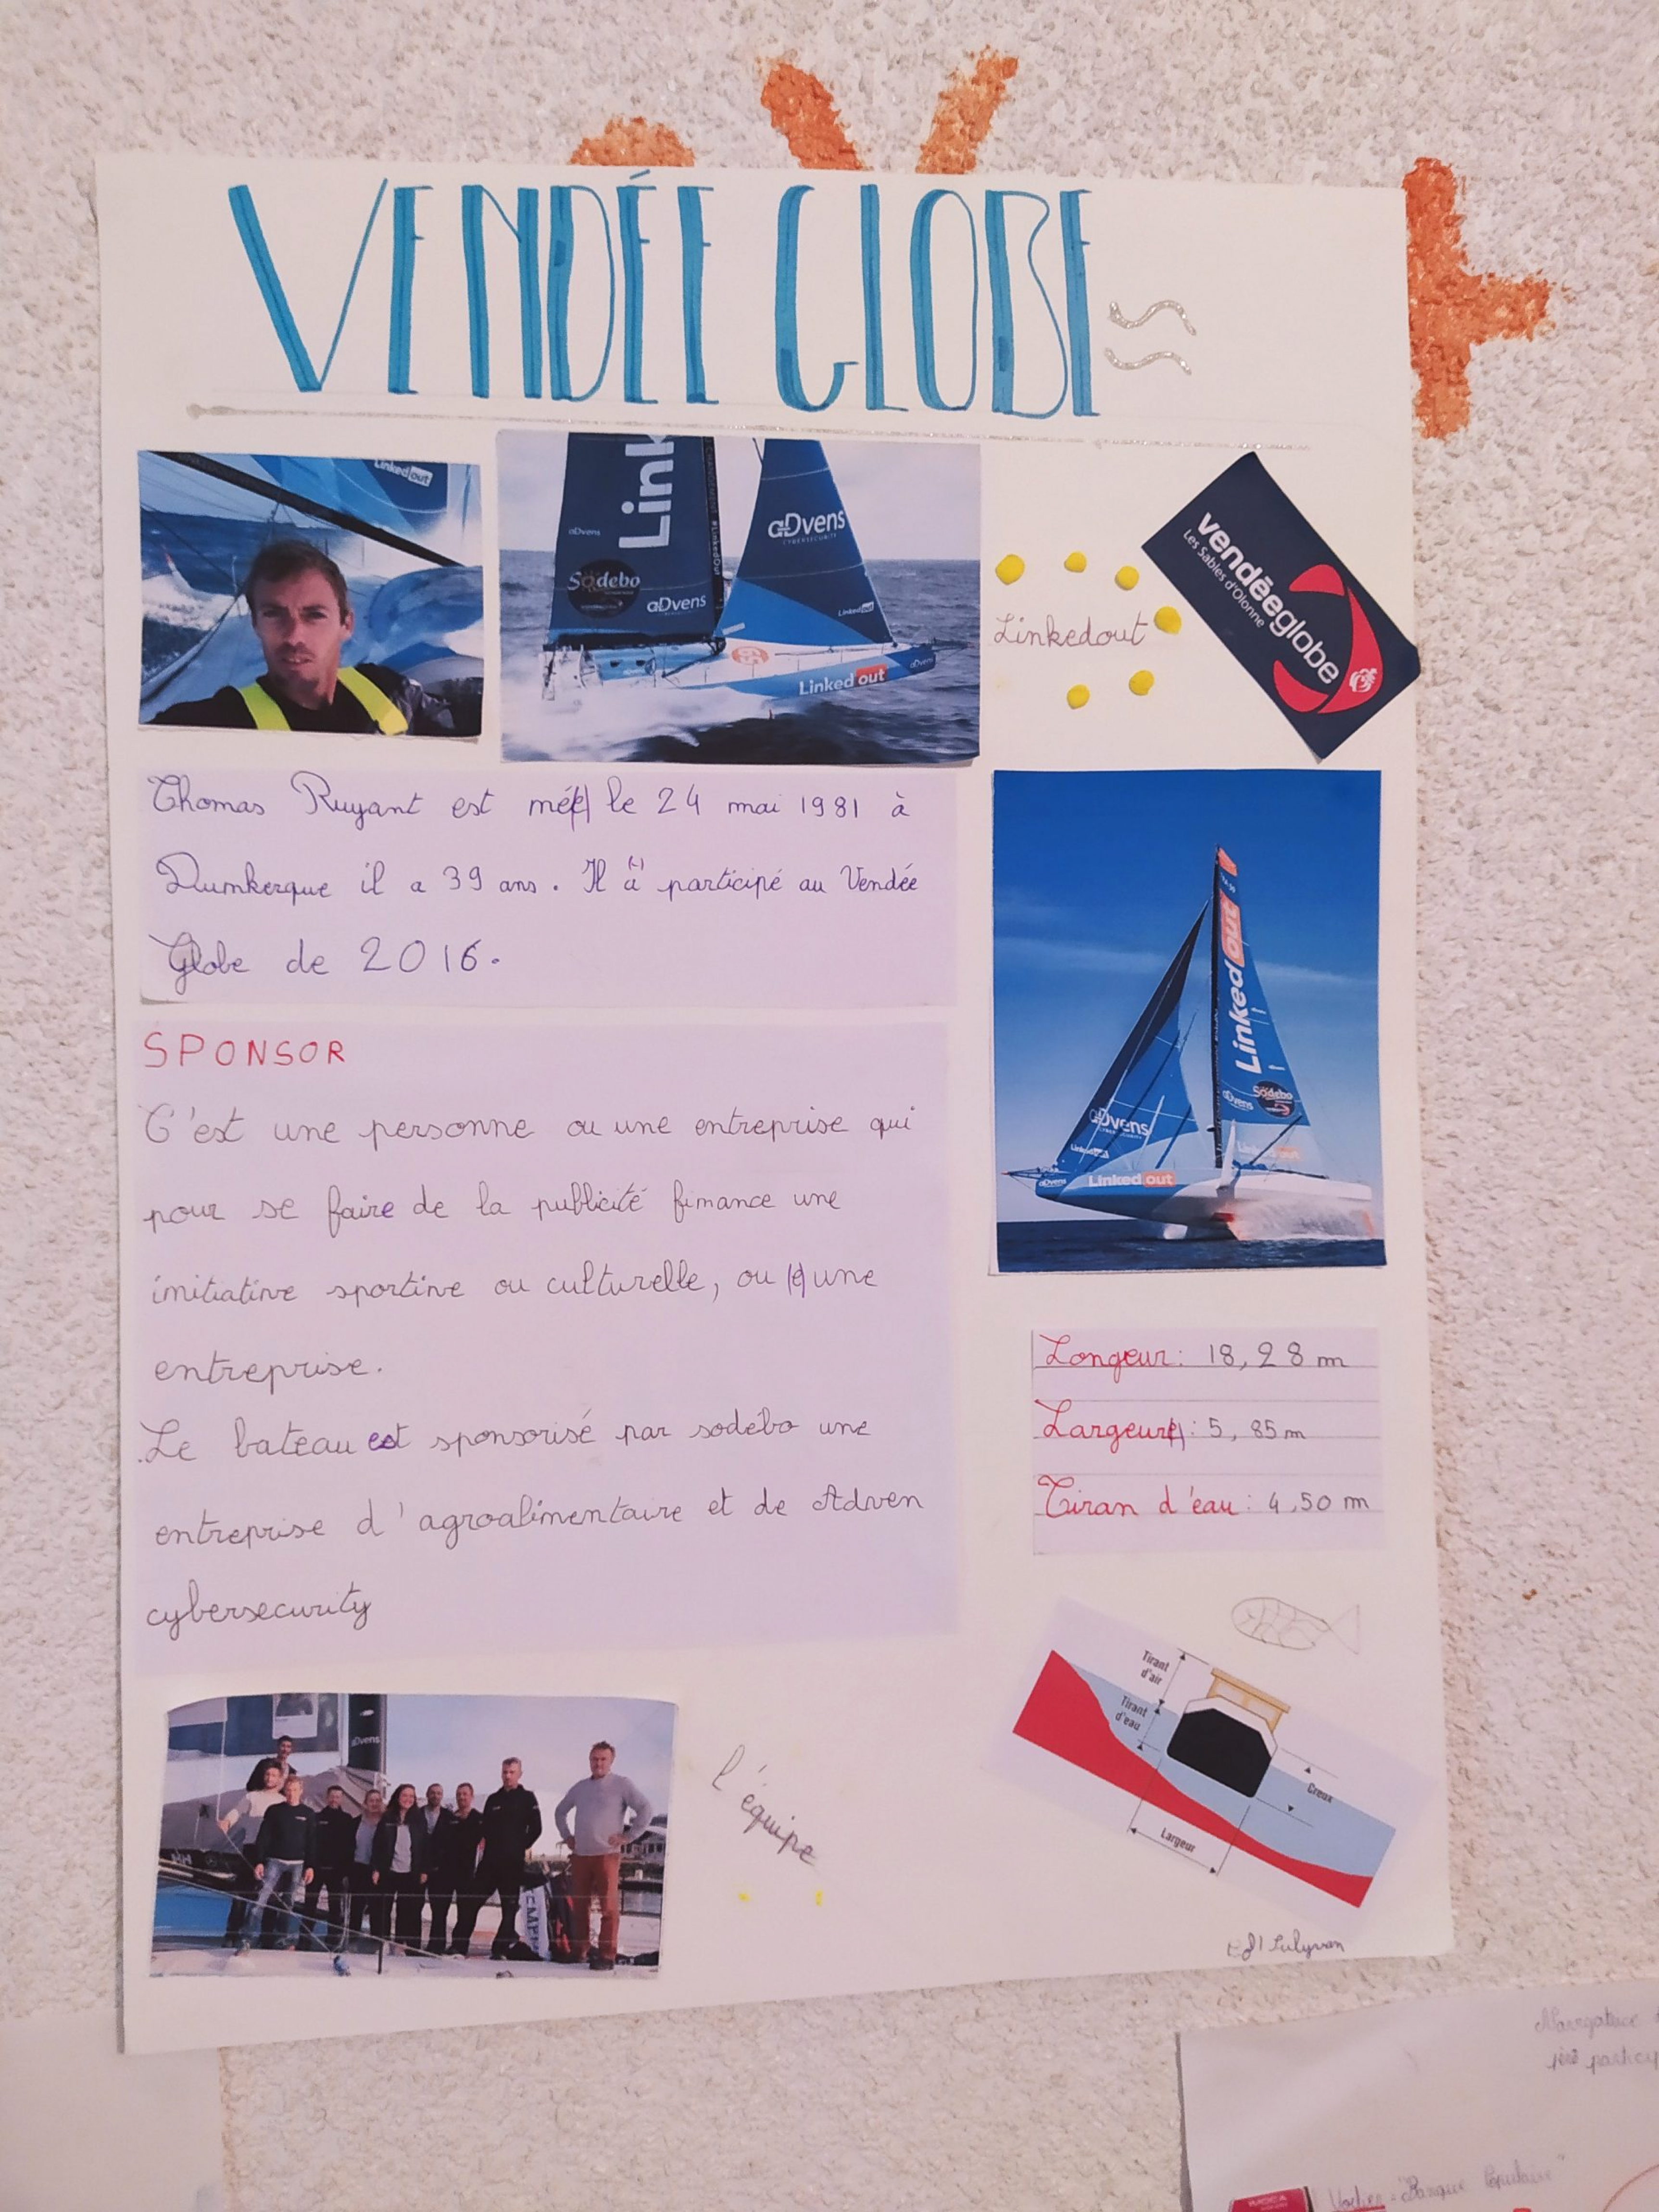 VENDÉE GLOBE
Linked out
Link
aDvens
Sodebo
aDvens
aDvens
CYBERSECURITY
Linked out
Linked out
aDvens
Linkedout
vendéeglobe
Les Sables d'Olonne
Thomas Ruyant est né(e) le 24 mai 1981 à
Dunkerque il a 39 ans. Il a participé au Vendée
Globe de 2016.
SPONSOR
C'est une personne ou une entreprise qui
pour se faire de la publicité finance une
initiative sportive ou culturelle, ou (e) une
entreprise.
Le bateau est sponsorisé par sodébo une
entreprise d'agroalimentaire et de Adven
cybersecurity
Linked out
Sodebo
aDvens
aDvens
Linked out
aDvens
Linked out
Longeur : 18,28 m
Largeur : 5,85 m
Tiran d'eau : 4,50 m
Tirant
d'air
Tirant
d'eau
Creux
Largeur
aDvens
l'équipe
Voilier "Banque Populaire"